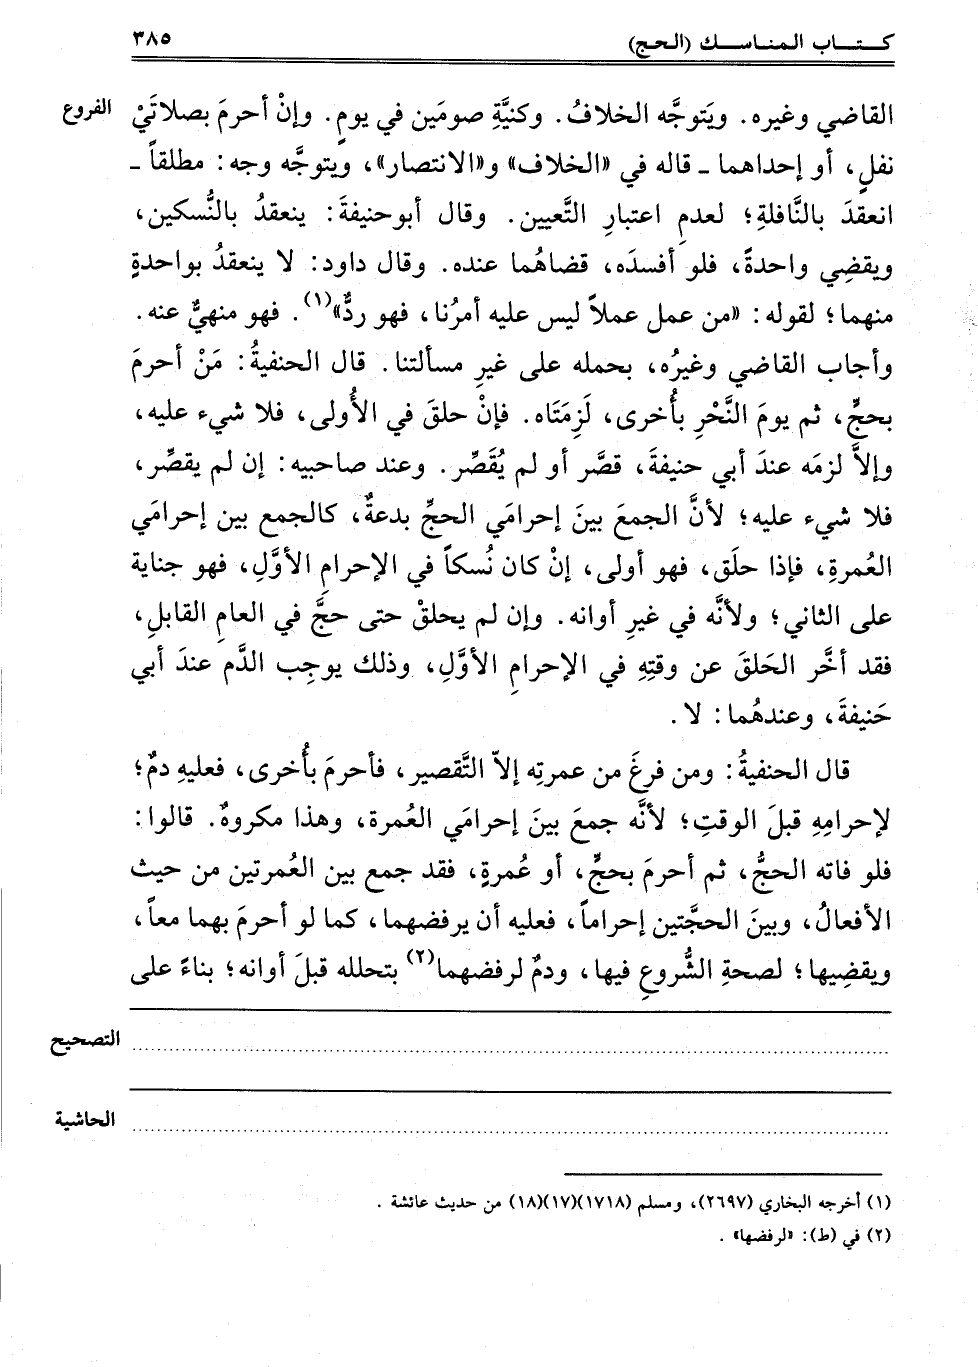 كتاب المناسك (الحج) ٣٨٥
القاضي وغيره. ويَتوجَّه الخلافُ. وكنيَّةِ صومَين في يومٍ. وإنْ أحرمَ بصلاتَيْ الفروع
نفلٍ، أو إحداهما ـ قاله في «الخلاف» و«الانتصار»، ويتوجَّه وجه: مطلقاً ـ
انعقدَ بالنَّافلةِ؛ لعدمِ اعتبارِ التَّعيين. وقال أبوحنيفةَ: ينعقدُ بالنُّسكين،
ويقضِي واحدةً، فلو أفسدَه، قضاهُما عنده. وقال داود: لا ينعقدُ بواحدةٍ
منهما؛ لقوله: «من عمل عملاً ليس عليه أمرُنا، فهو ردٌّ»(١). فهو منهيٌّ عنه.
وأجاب القاضي وغيرُه، بحمله على غيرِ مسألتنا. قال الحنفيةُ: مَنْ أحرمَ
بحجٍّ، ثم يومَ النَّحْرِ بأُخرى، لَزِمَتَاه. فإنْ حلقَ في الأُولى، فلا شيء عليه،
وإلاَّ لزمَه عندَ أبي حنيفةَ، قصَّر أو لم يُقَصِّر. وعند صاحبيه: إن لم يقصِّر،
فلا شيء عليه؛ لأنَّ الجمعَ بينَ إحرامَي الحجِّ بدعةٌ، كالجمع بين إحرامَي
العُمرةِ، فإذا حلَق، فهو أولى، إنْ كان نُسكاً في الإحرامِ الأوَّلِ، فهو جناية
على الثاني؛ ولأنَّه في غيرِ أوانه. وإن لم يحلقْ حتى حجَّ في العامِ القابلِ،
فقد أخَّر الحَلقَ عن وقتِهِ في الإحرامِ الأوَّلِ، وذلك يوجِب الدَّم عندَ أبي
حَنيفةَ، وعندهُما: لا.
قال الحنفيةُ: ومن فرغَ من عمرتِه إلاّ التَّقصير، فأحرمَ بأُخرى، فعليهِ دمٌ؛
لإحرامِهِ قبلَ الوقتِ؛ لأنَّه جمعَ بينَ إحرامَي العُمرة، وهذا مكروهٌ. قالوا:
فلو فاته الحجُّ، ثم أحرمَ بحجٍّ، أو عُمرةٍ، فقد جمع بين العُمرتين من حيث
الأفعالُ، وبينَ الحجَّتين إحراماً، فعليه أن يرفضهما، كما لو أحرمَ بهما معاً،
ويقضِيها؛ لصحةِ الشُّروعِ فيها، ودمٌ لرفضهما(٢) بتحلله قبلَ أوانه؛ بناءً على
التصحيح
الحاشية
(١) أخرجه البخاري (٢٦٩٧)، ومسلم (١٧١٨)(١٧)(١٨) من حديث عائشة.
(٢) في (ط): «لرفضها».